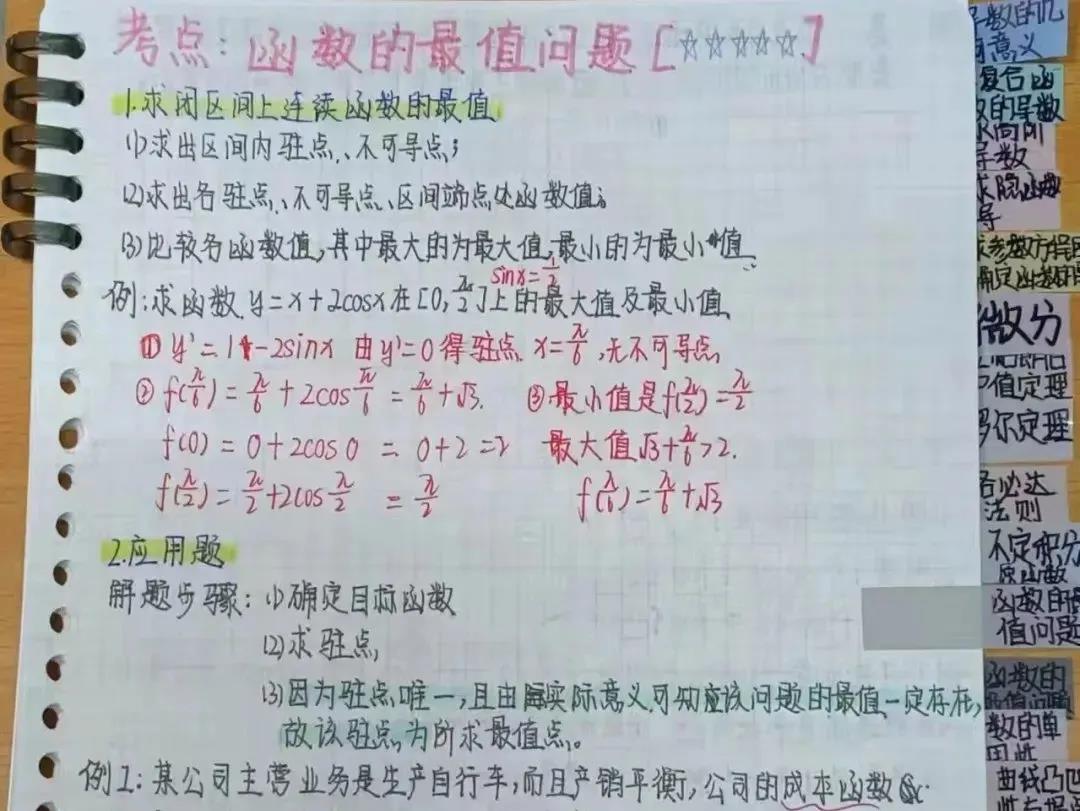 考点:函数的最值问题[☆☆☆☆☆]
1.求闭区间上连续函数的最值
(1)求出区间内驻点、不可导点;
(2)求出各驻点、不可导点、区间端点处函数值;
(3)比较各函数值,其中最大的为最大值,最小的为最小值
sinx=1/2
例:求函数 y=x+2cosx在[0,π/2]上的最大值及最小值
① y'=1-2sinx 由y'=0得驻点 x=π/6,无不可导点,
② f(π/6)=π/6+2cosπ/6=π/6+√3. ③最小值是f(π/2)=π/2
f(0)=0+2cos0=0+2=2 最大值√3+π/6>2.
f(π/2)=π/2+2cosπ/2=π/2 f(π/6)=π/6+√3
2.应用题
解题步骤:(1)确定目标函数
(2)求驻点,
(3)因为驻点唯一,且由实际意义可知应该问题的最值一定存在,
故该驻点为所求最值点。
例1:某公司主营业务是生产自行车,而且产销平衡,公司的成本函数
导数的几
何意义
复合函
数的导数
求高阶
导数
求隐函数
导
求参数方程
确定函数
微分
中值定理
罗尔定理
洛必达
法则
不定积分
原函数
函数的最
值问题
函数的
数的单
调性
曲线凸凹